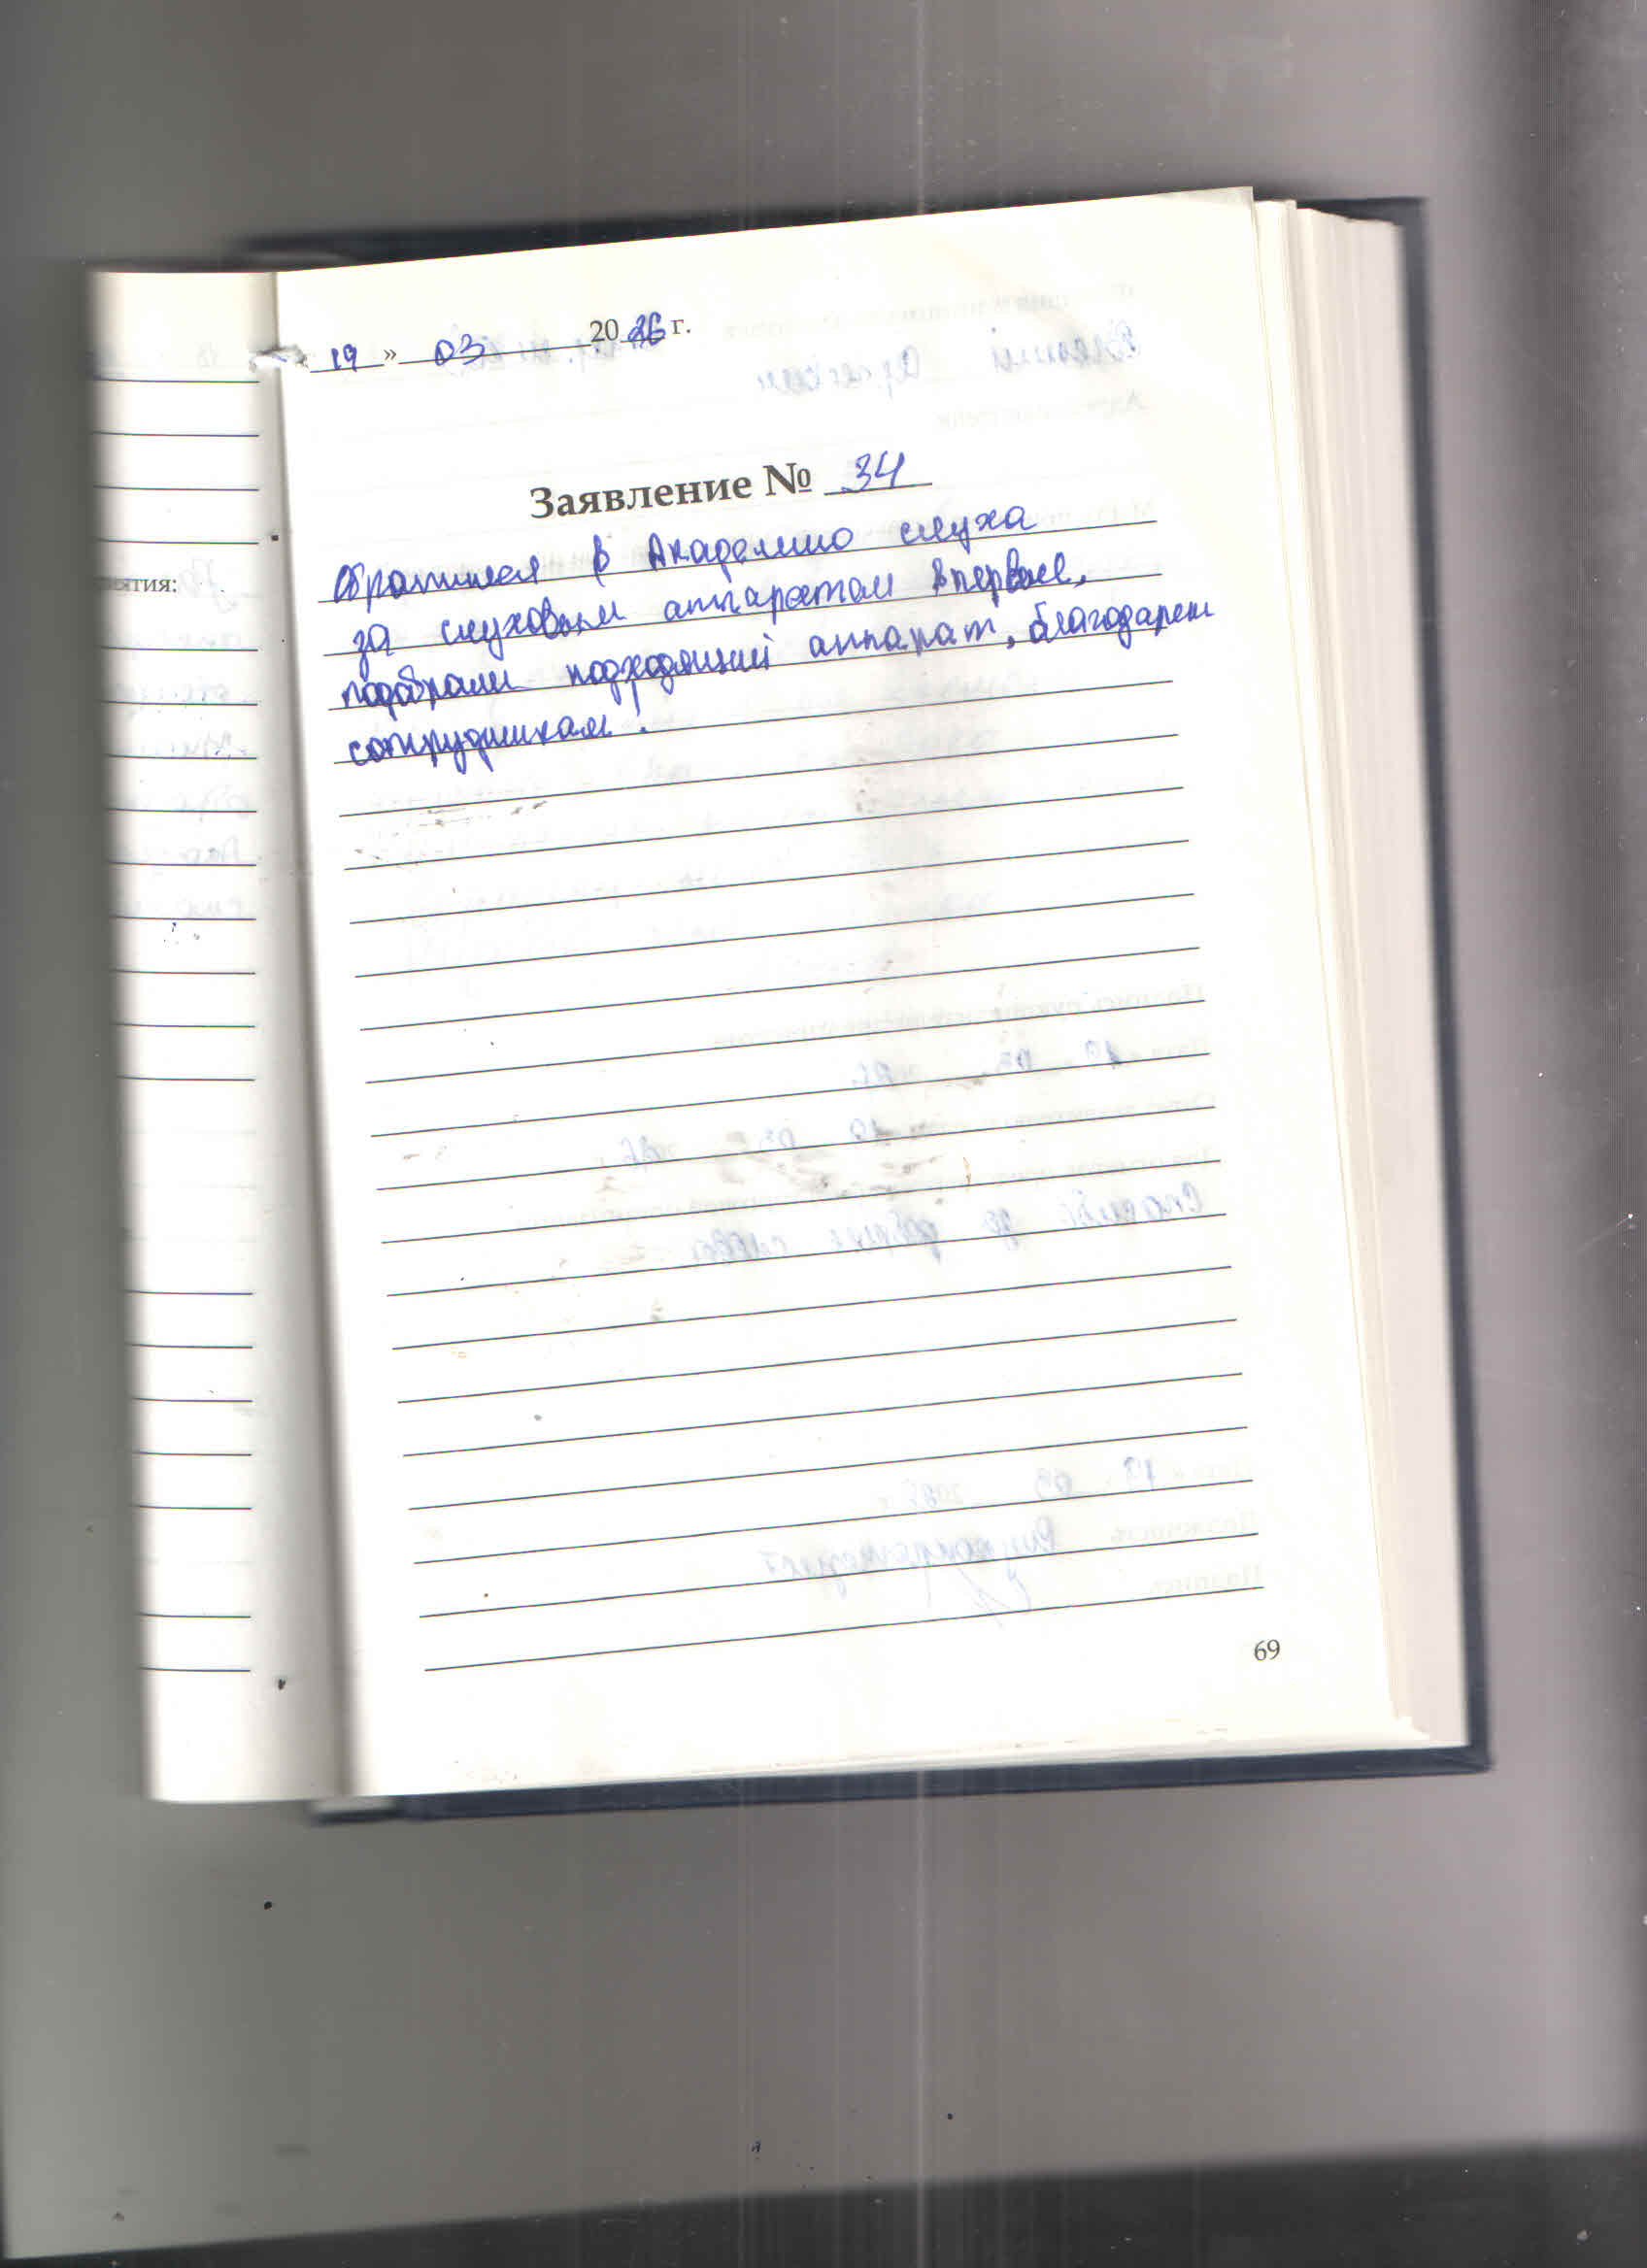 « 19 » 03 2026 г.
Заявление № 34
Обратился в Академию слуха
за слуховым аппаратом впервые,
подобрали подходящий аппарат, благодарен
сотрудникам!
ятия:
69